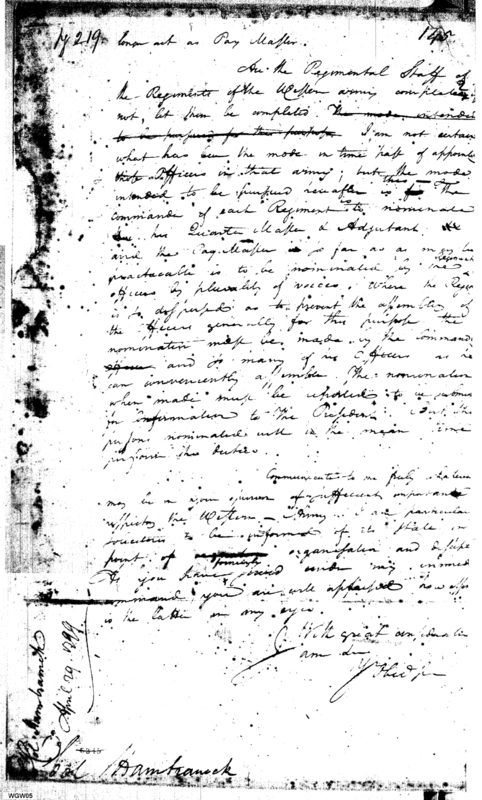 longer act as Pay Master.
145
Are the Regimental Staff of
the Regiments of the Western army complete, if
not, let them be completed. The mode intended
to be pursued for this purpose I am not certain
what has been the mode in time past of appointing
these Officers in that army; but the mode
intended to be pursued hereafter is this The
commander of each Regiment to nominate
his Quarter Master & Adjutant
and the Pay Master so far as may be
practicable is to be nominated by the Regimental
officers by plurality of voices. Where the Regiment
is so dispersed as to prevent the assembling of
the officers generally for this purpose the
nomination must be made by the Commandant
and so many of his Officers as he
can conveniently assemble. The nomination
when made must be reported to me
for information to The President. But the
persons nominated will in the mean time
perform the duties.
Communicate to me freely whatever
may be in your opinion of sufficient importance
respecting the Western Army. I am particularly
solicitous to be informed of its state in
point of organisation and discipline
As you have formerly served under my immediate
command you are well apprised how essential
is the latter in my eyes.
With great consideration
I am Dr Sir
Yr Obed Ser
Col. Hamtramck
April 29 1799
Col Hamtramck
WGW05